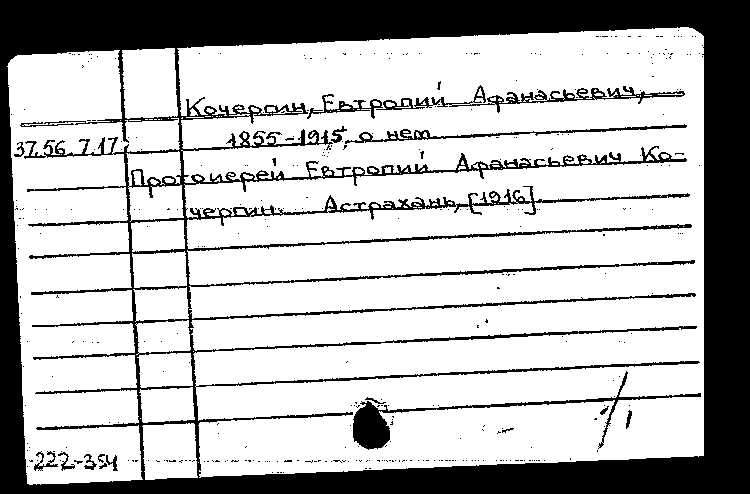 Кочергин, Евтропий Афанасьевич,
37.56.7.17 1855-1915, о нем
Протоиерей Евтропий Афанасьевич Ко-
чергин. Астрахань, [1916].
222-354